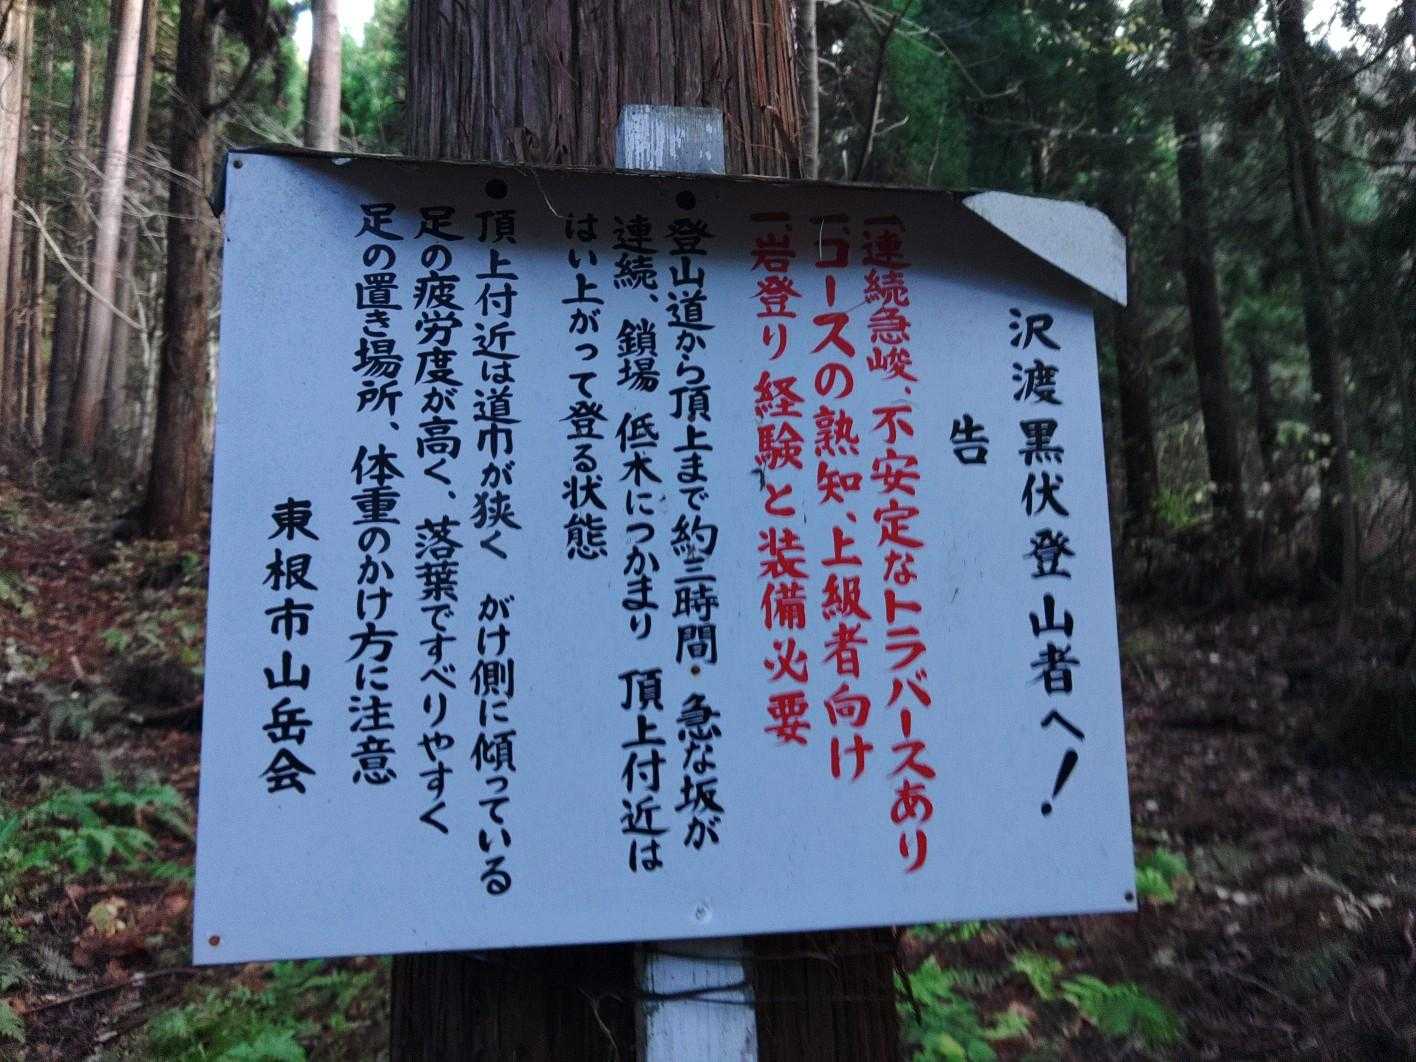 沢渡黒伏登山者へ!
告
一、連続急峻、不安定なトラバースあり
一、コースの熟知、上級者向け
一、岩登り経験と装備必要
●登山道から頂上まで約三時間・急な坂が
連続、鎖場 低木につかまり 頂上付近は
はい上がって登る状態
●頂上付近は道巾が狭く がけ側に傾っている
足の疲労度が高く、落葉ですべりやすく
足の置き場所、体重のかけ方に注意
東根市山岳会